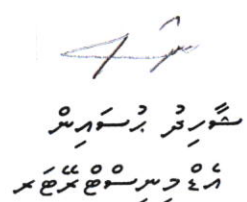 ޝާހިދު ޙުސައިން
އެޑްމިނިސްޓްރޭޓަރ